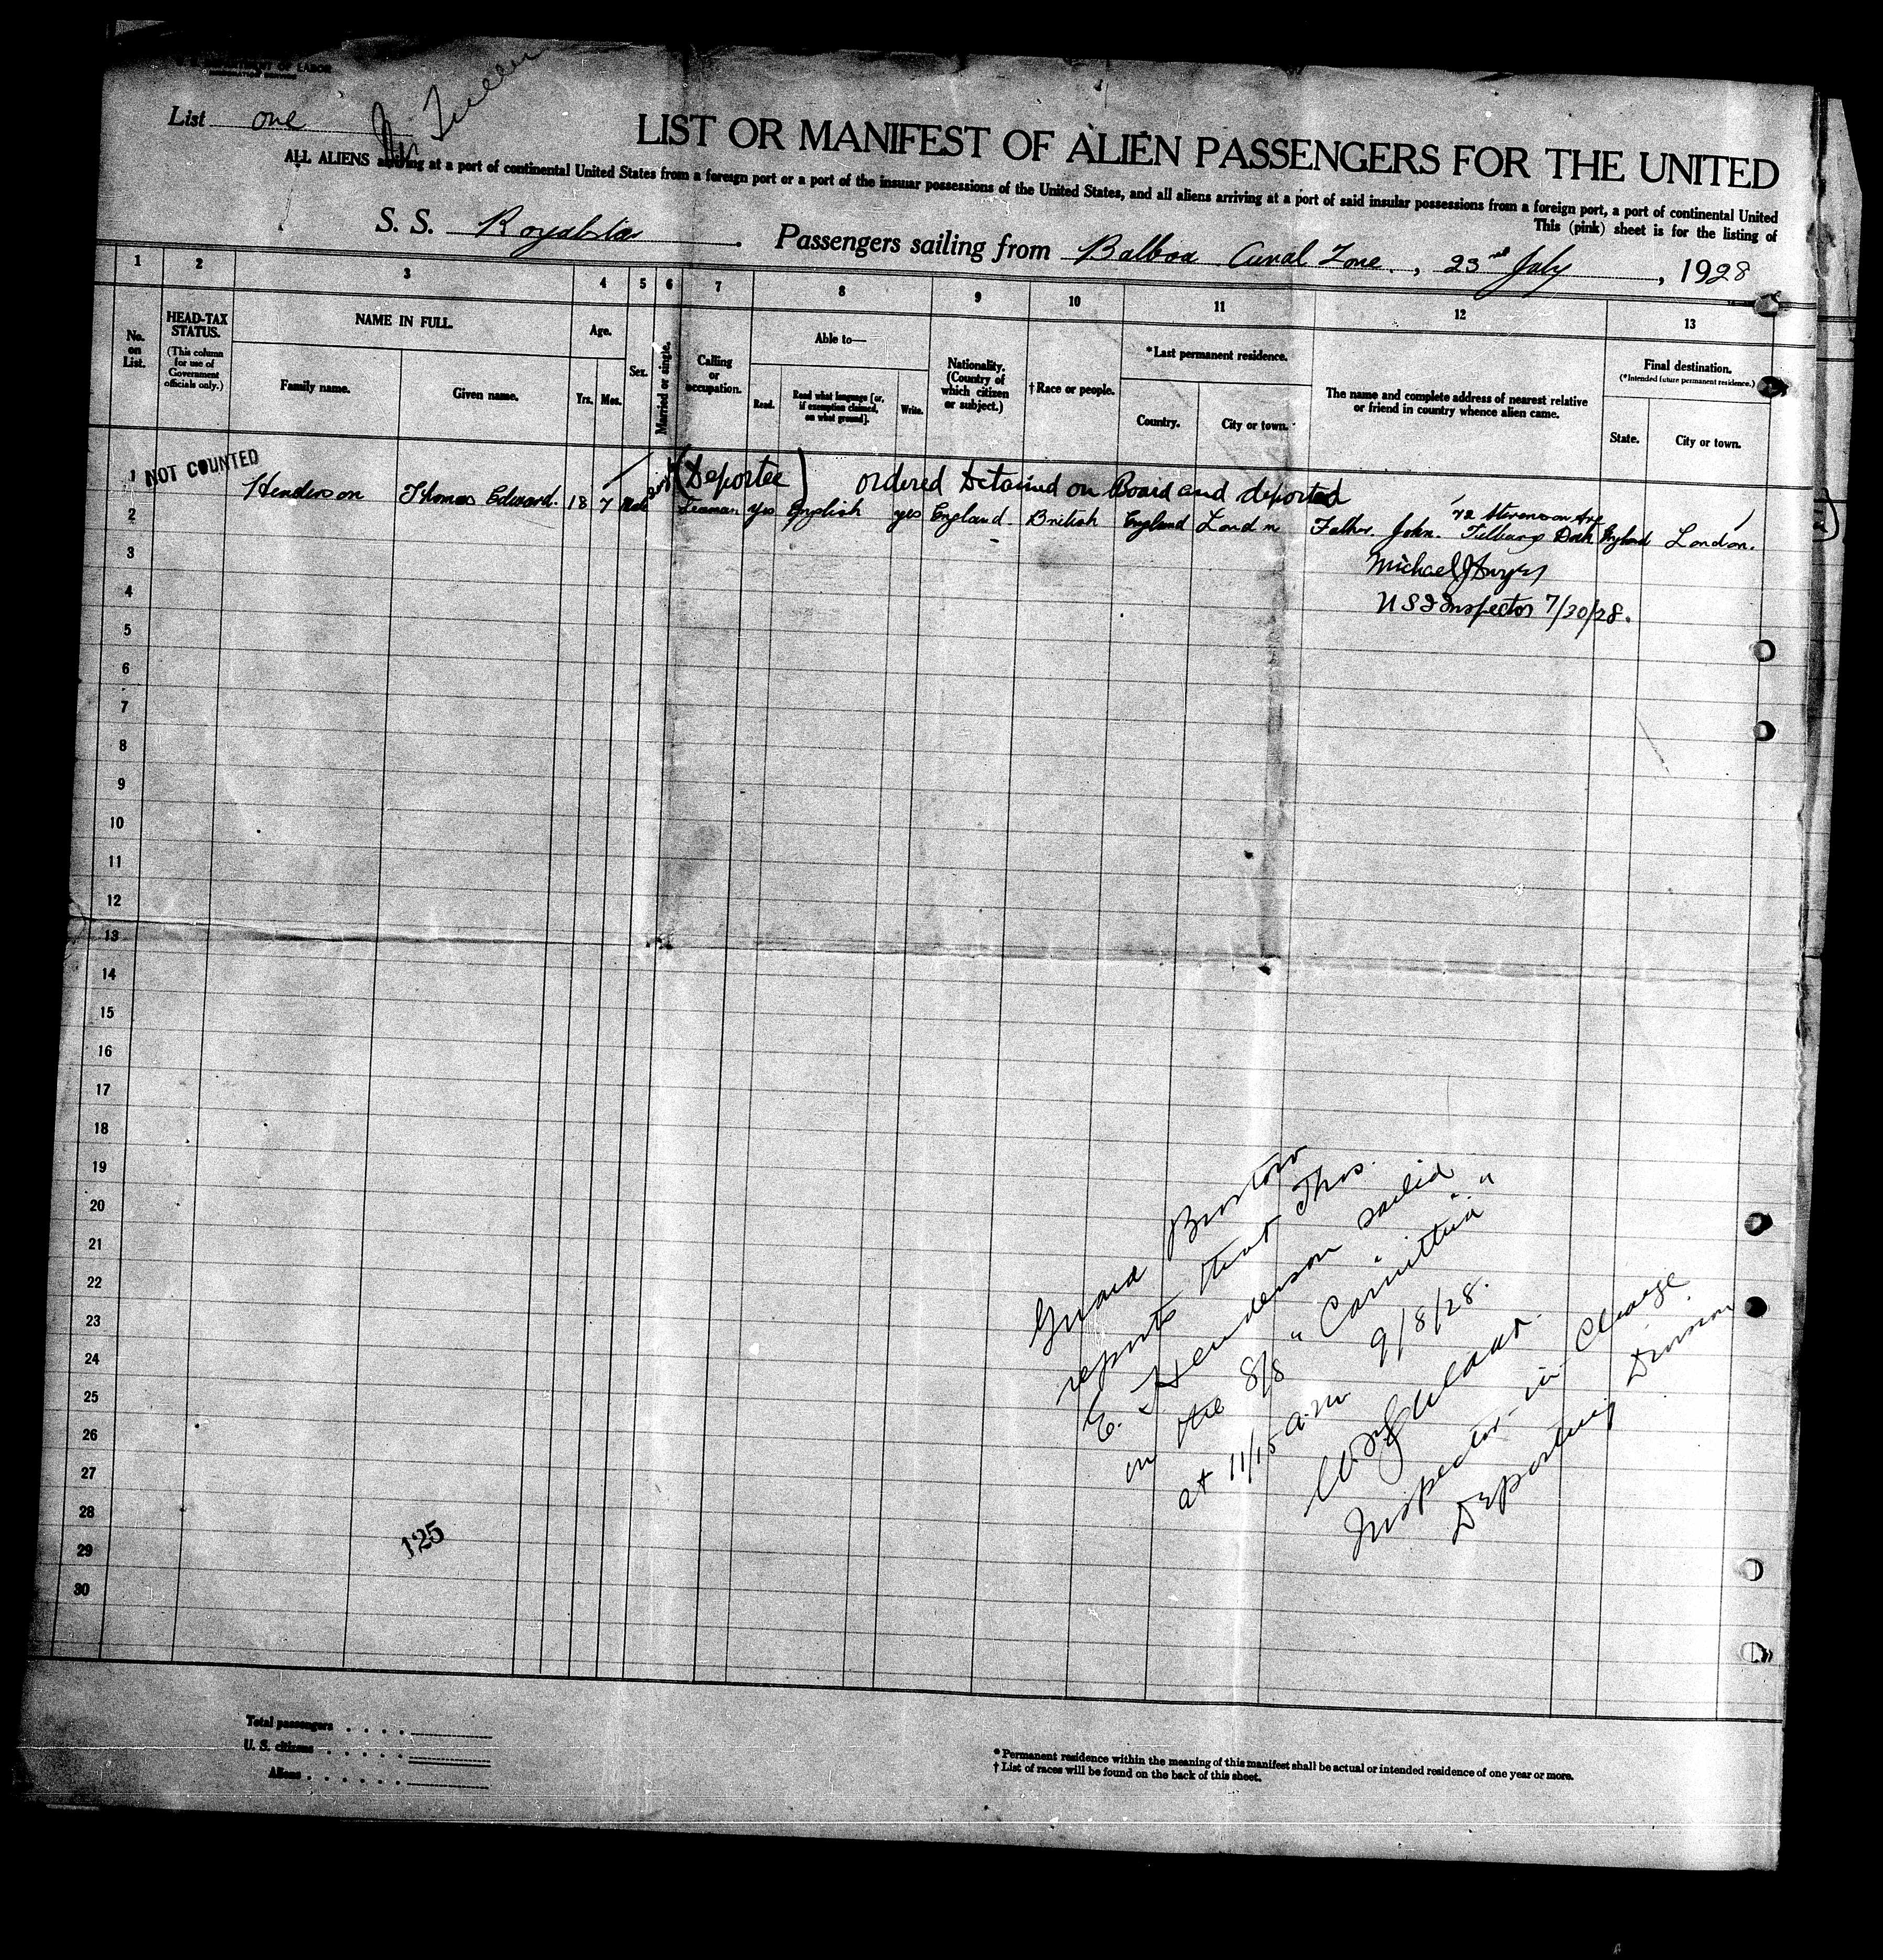 DEPARTMENT OF LABOR
List one
LIST OR MANIFEST OF ALIEN PASSENGERS FOR THE UNITED
ALL ALIENS arriving at a port of continental United States from a foreign port or a port of the insular possessions of the United States, and all aliens arriving at a port of said insular possessions from a foreign port, a port of continental United
This (pink) sheet is for the listing of
S. S. Royalstar. Passengers sailing from Balboa Canal Zone, 23rd July, 1928
1 2 3 4 5 6 7 8 9 10 11 12 13
No. on List.
HEAD-TAX STATUS.
(This column for use of Government officials only.)
NAME IN FULL.
Family name.
Given name.
Age.
Yrs. Mos.
Sex.
Married or single.
Calling or occupation.
Able to—
Read.
Read what language [or, if exemption claimed, on what ground].
Write.
Nationality. (Country of which citizen or subject.)
†Race or people.
*Last permanent residence.
Country.
City or town.
The name and complete address of nearest relative or friend in country whence alien came.
Final destination.
(*Intended future permanent residence.)
State.
City or town.
1 NOT COUNTED (Deportee) ordered detained on Board and deported
Henderson Thomas Edward. 18 7 Male Seaman yes English yes England British England London Father John. 72 Stevenson Ave Tilbury Dock England London.
2
3
Michael J Dwyer
4
U S I Inspector 7/30/28.
5
6
7
8
9
10
11
12
13
14
15
16
17
18
19
20
21
22
23
24
25
26
27
28
29
30
Guard Burstow
reports that Thos.
E. Henderson sailed
on the S/S "
at 11/15 a.m 9/8/28.
Inspector-in-Charge
Deporting Division
125
Total passengers
U. S. citizens
Aliens
* Permanent residence within the meaning of this manifest shall be actual or intended residence of one year or more.
† List of races will be found on the back of this sheet.